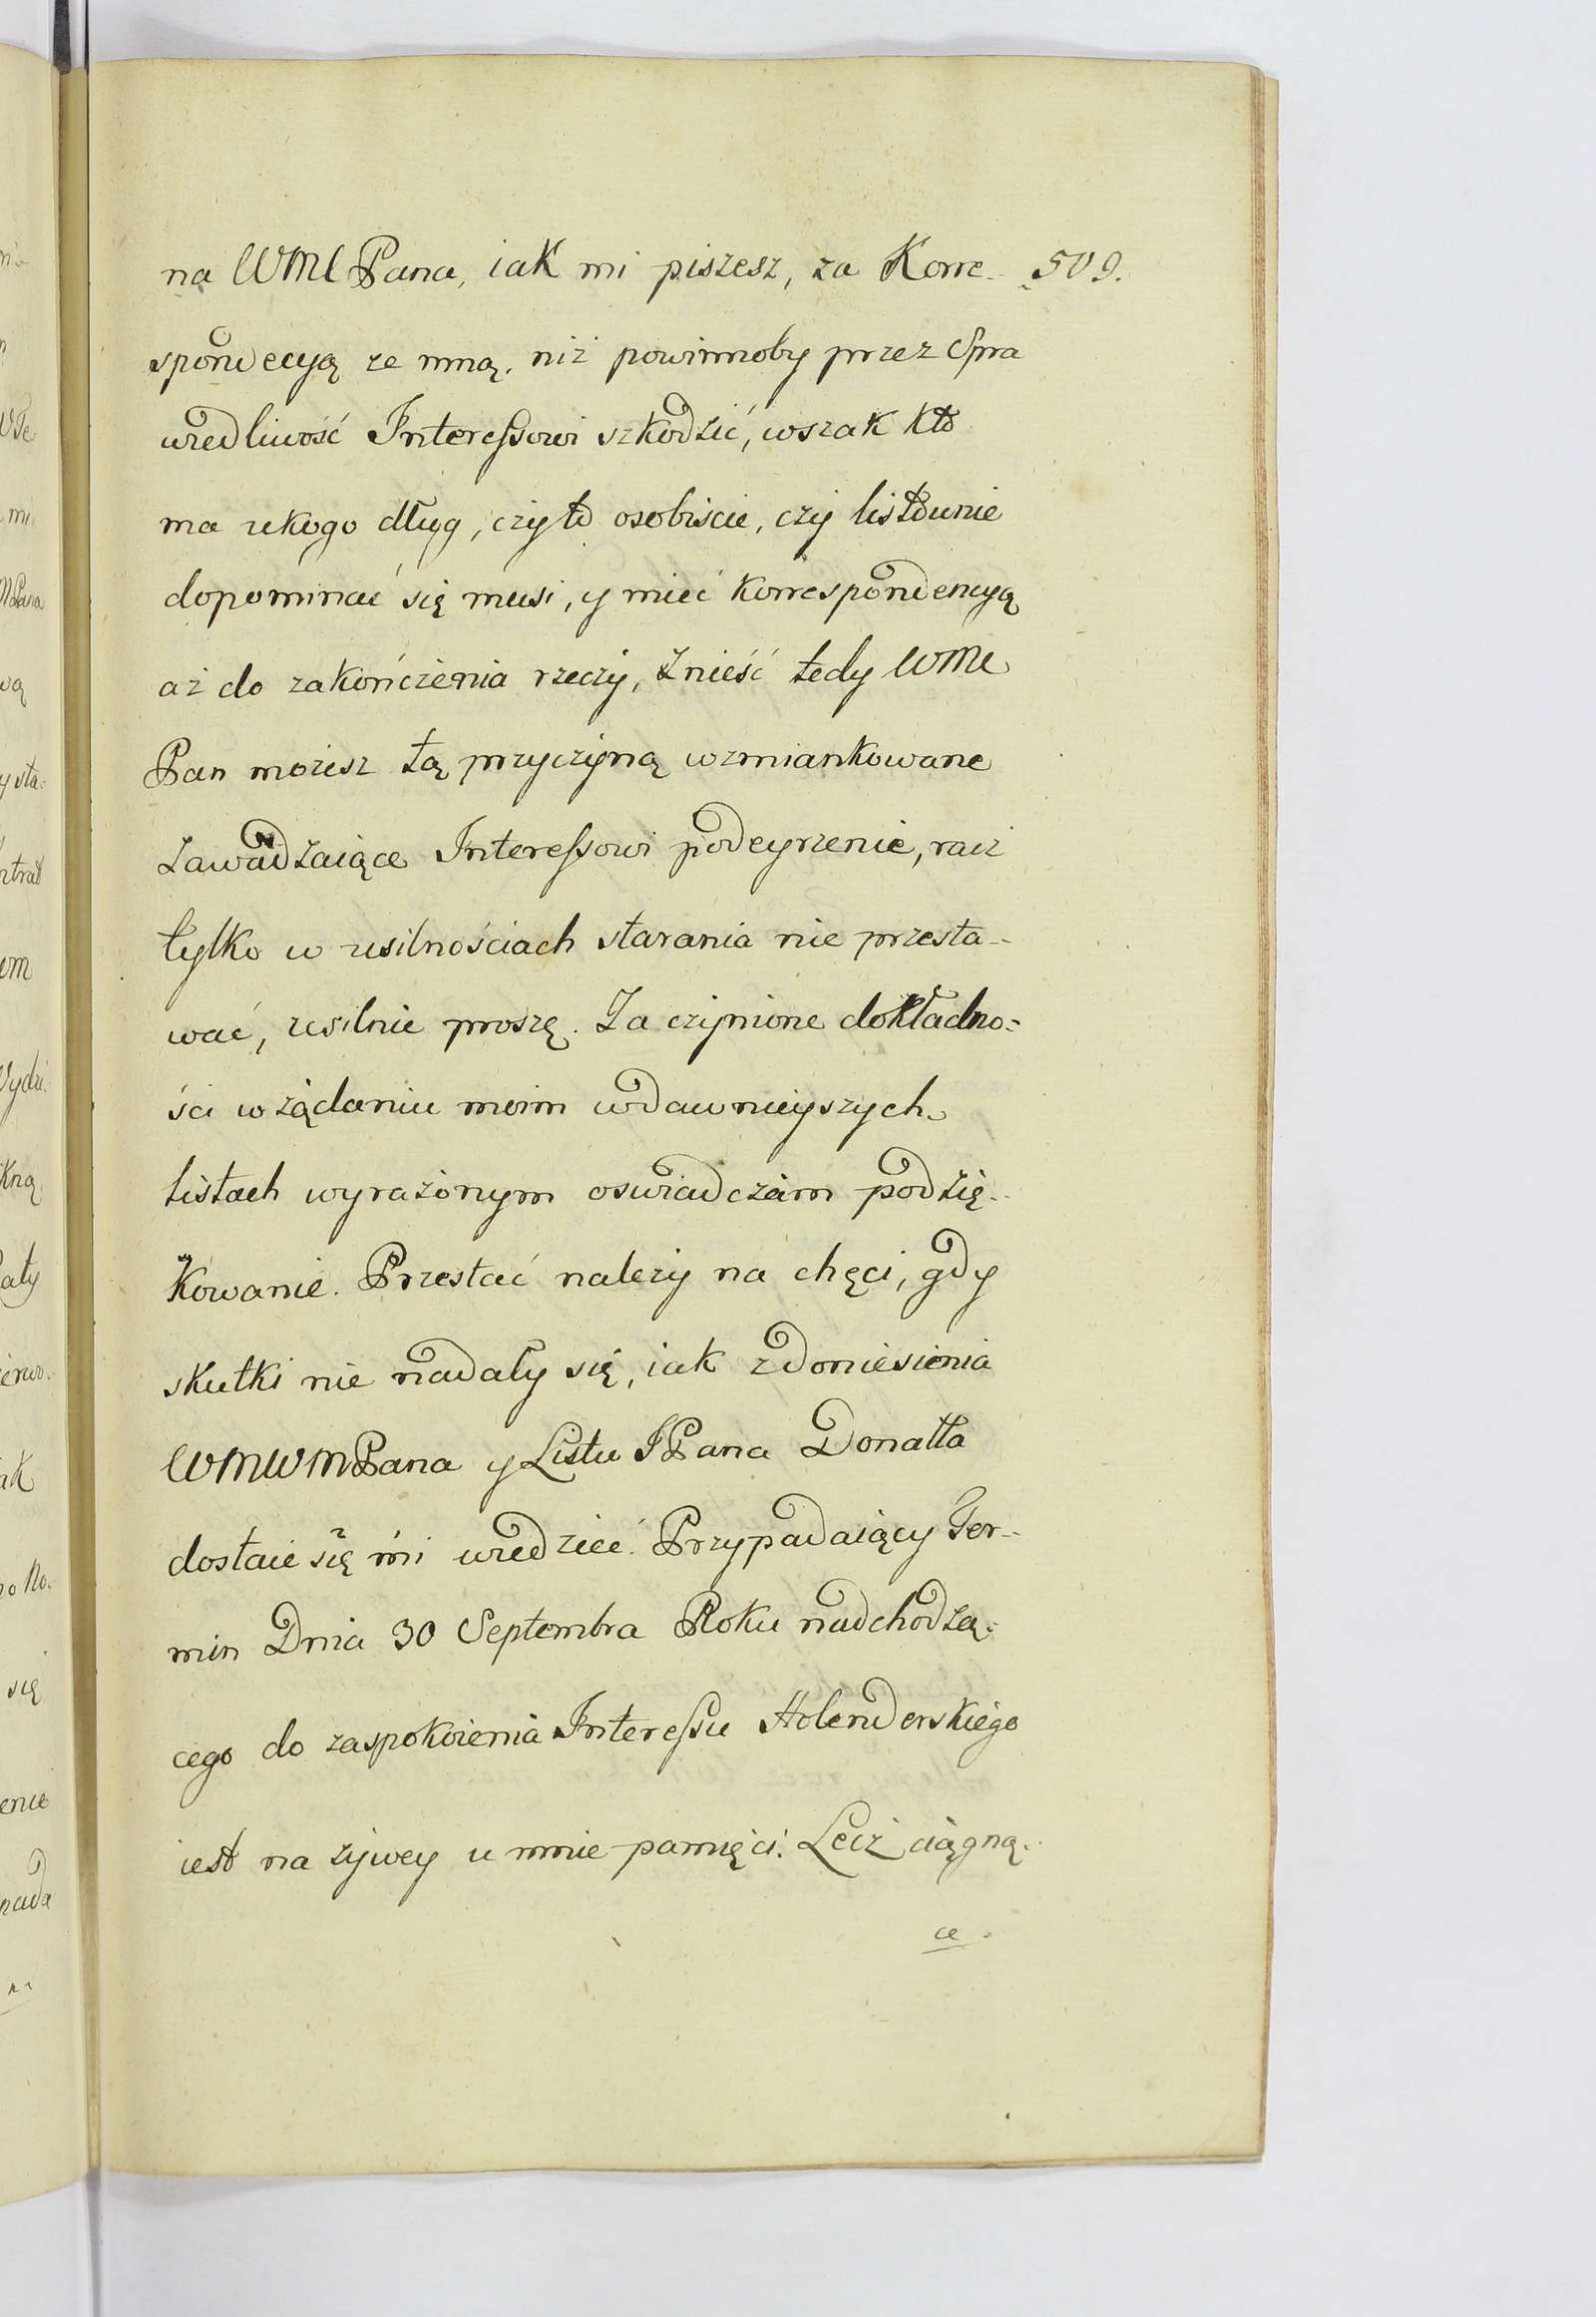 na WMC Pana, iak mi piszesz, za Korre- 509.
spondecyą ze mną, niż powinnoby przez Spra
wiedliwość Interessowi szkodzić, wszak kto
ma ukogo dług, czy to osobiscie, czy listownie
dopominać się musi, y mieć Korrespondencyą
aż do zakończenia rzeczy, Znieść tedy WMC
Pan możesz tą przyczyną wzmiankowane
Zawadzaiące Interessowi podeyrzenie, racz
tylko w usilnościach starania nie przesta-
wać, usilnie proszę. Za czynione dokładno=
ści w żądaniu moim wdawnieyszych
listach wyrażonym oswiadczam podzię-
kowanie. Przestać należy na chęci, gdy
skutki nie nadały się, iak zdoniesienia
WMWMPana y Listu JPana Donatta
dostaie się mi wiedzieć. Przypadaiący Ter-
min Dnia 30 Septembra Roku nadchodzą=
cego do zaspokoienia Interessu Holenderskiego
iest na żywey u mnie pamięci. Lecz ciągną-
ce.